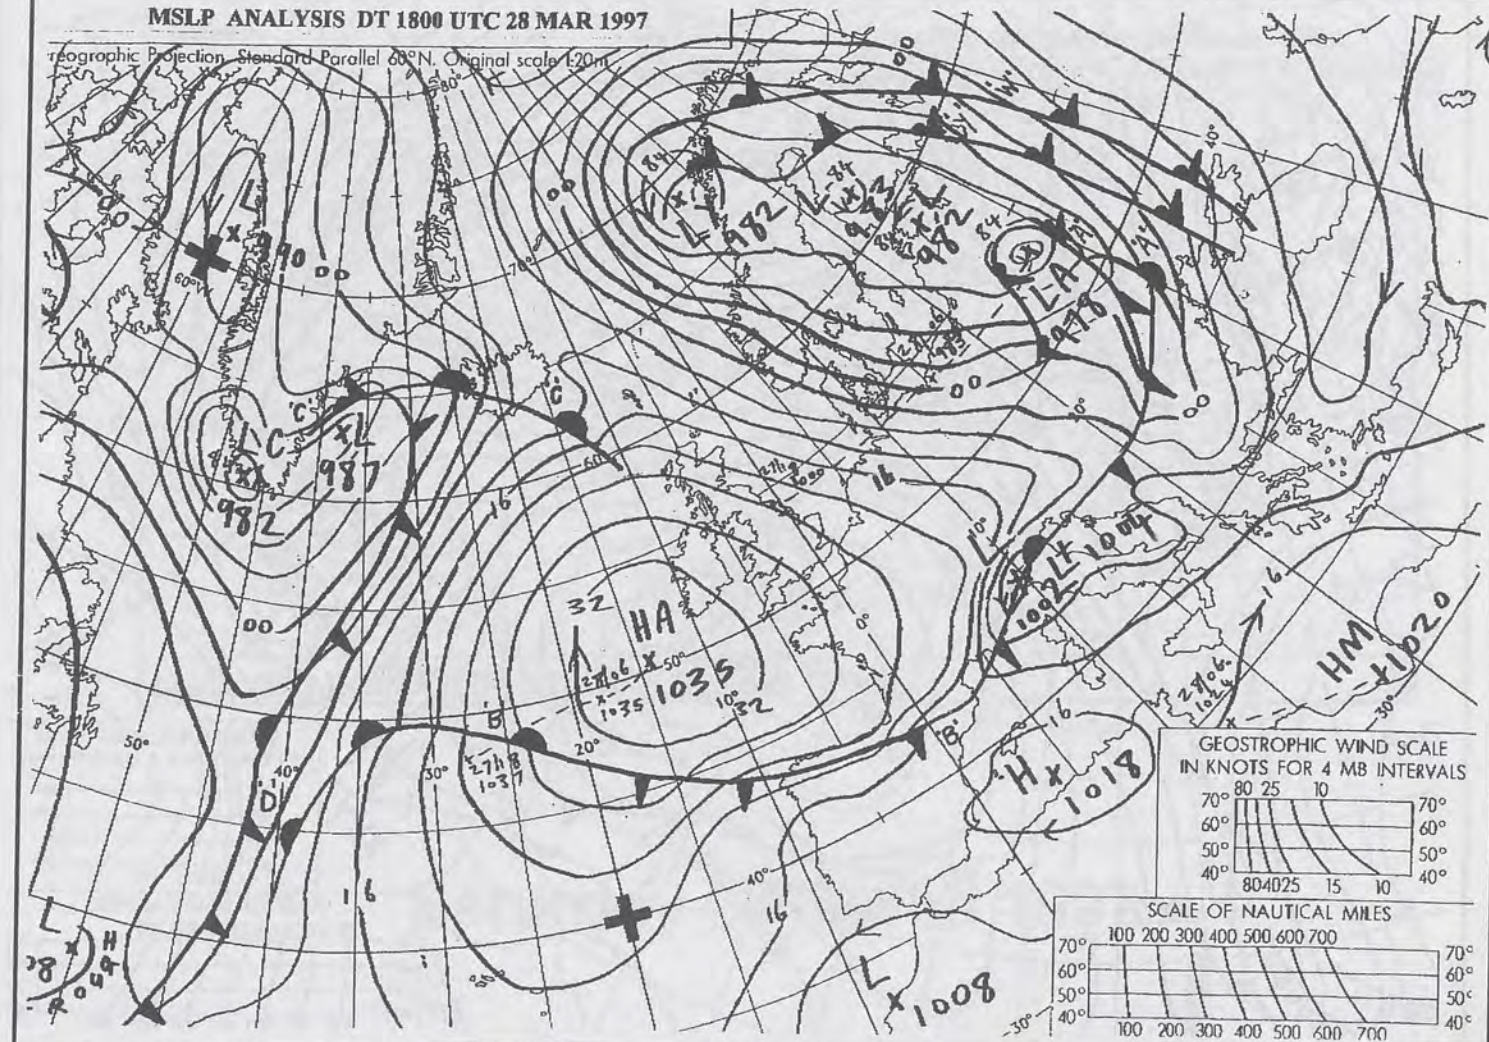 MSLP ANALYSIS DT 1800 UTC 28 MAR 1997
reographic Projection Standard Parallel 60°N. Original scale 1:20m
80°
00
'W'
40°
84
L
982
L
84
982
84
'A'
'A'
00
L
x 990
00
60°
70°
L A
978
00
00
'C'
'C'
C
xL
987
L
982
60°
16
16
10°
27/18
1030
Lx 1004
1002
L
16
32
HA
x
28/06
1035
1035
50°
10°
32
0°
00
HM
+1020
28/06
1024
30°
'B'
'B'
20°
27/18
1037
30°
40°
50°
'D'
H x
1018
16
16
16
40°
L
x
1008
30°
L
x
GEOSTROPHIC WIND SCALE
IN KNOTS FOR 4 MB INTERVALS
80 25 10
70° 70°
60° 60°
50° 50°
40° 40°
80 40 25 15 10
SCALE OF NAUTICAL MILES
100 200 300 400 500 600 700
70° 70°
60° 60°
50° 50°
40° 40°
100 200 300 400 500 600 700